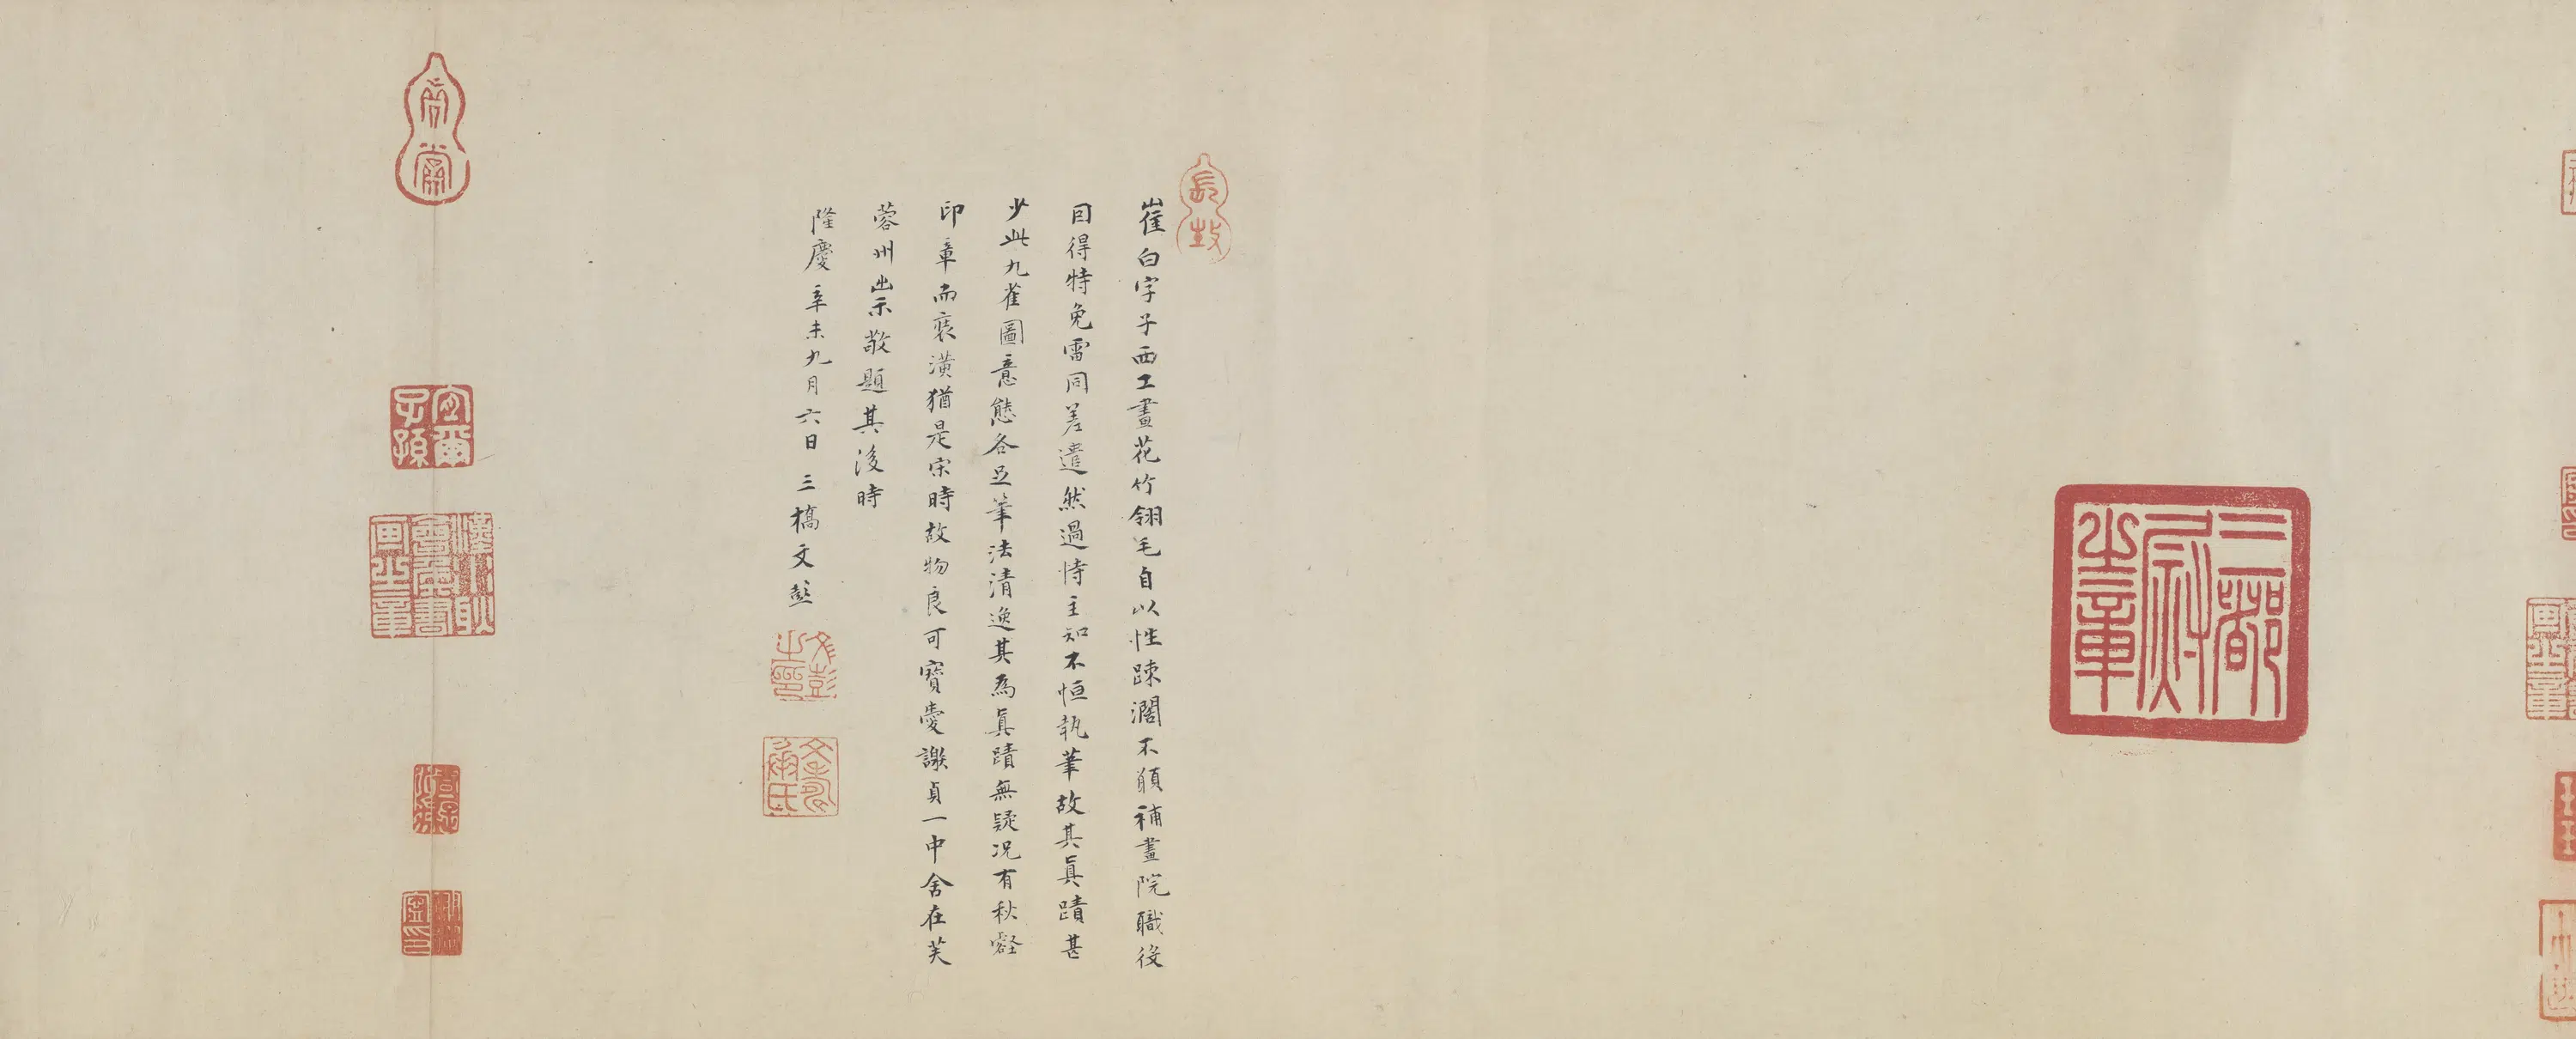 崔白字子西工畫花竹翎毛自以性踈濶不願補畫院職後
因得特免雷同差遣然過恃主知不恒執筆故其真蹟甚
少此九雀圖意態各具筆法清逸其為真蹟無疑况有秋壑
印章而裝潢猶是宋時故物良可寶愛謝貞一中舍在芙
蓉州出示敬題其後時
隆慶辛未九月六日 三橋文彭
長
文彭之印
文壽承氏
宜爾子孫
琅